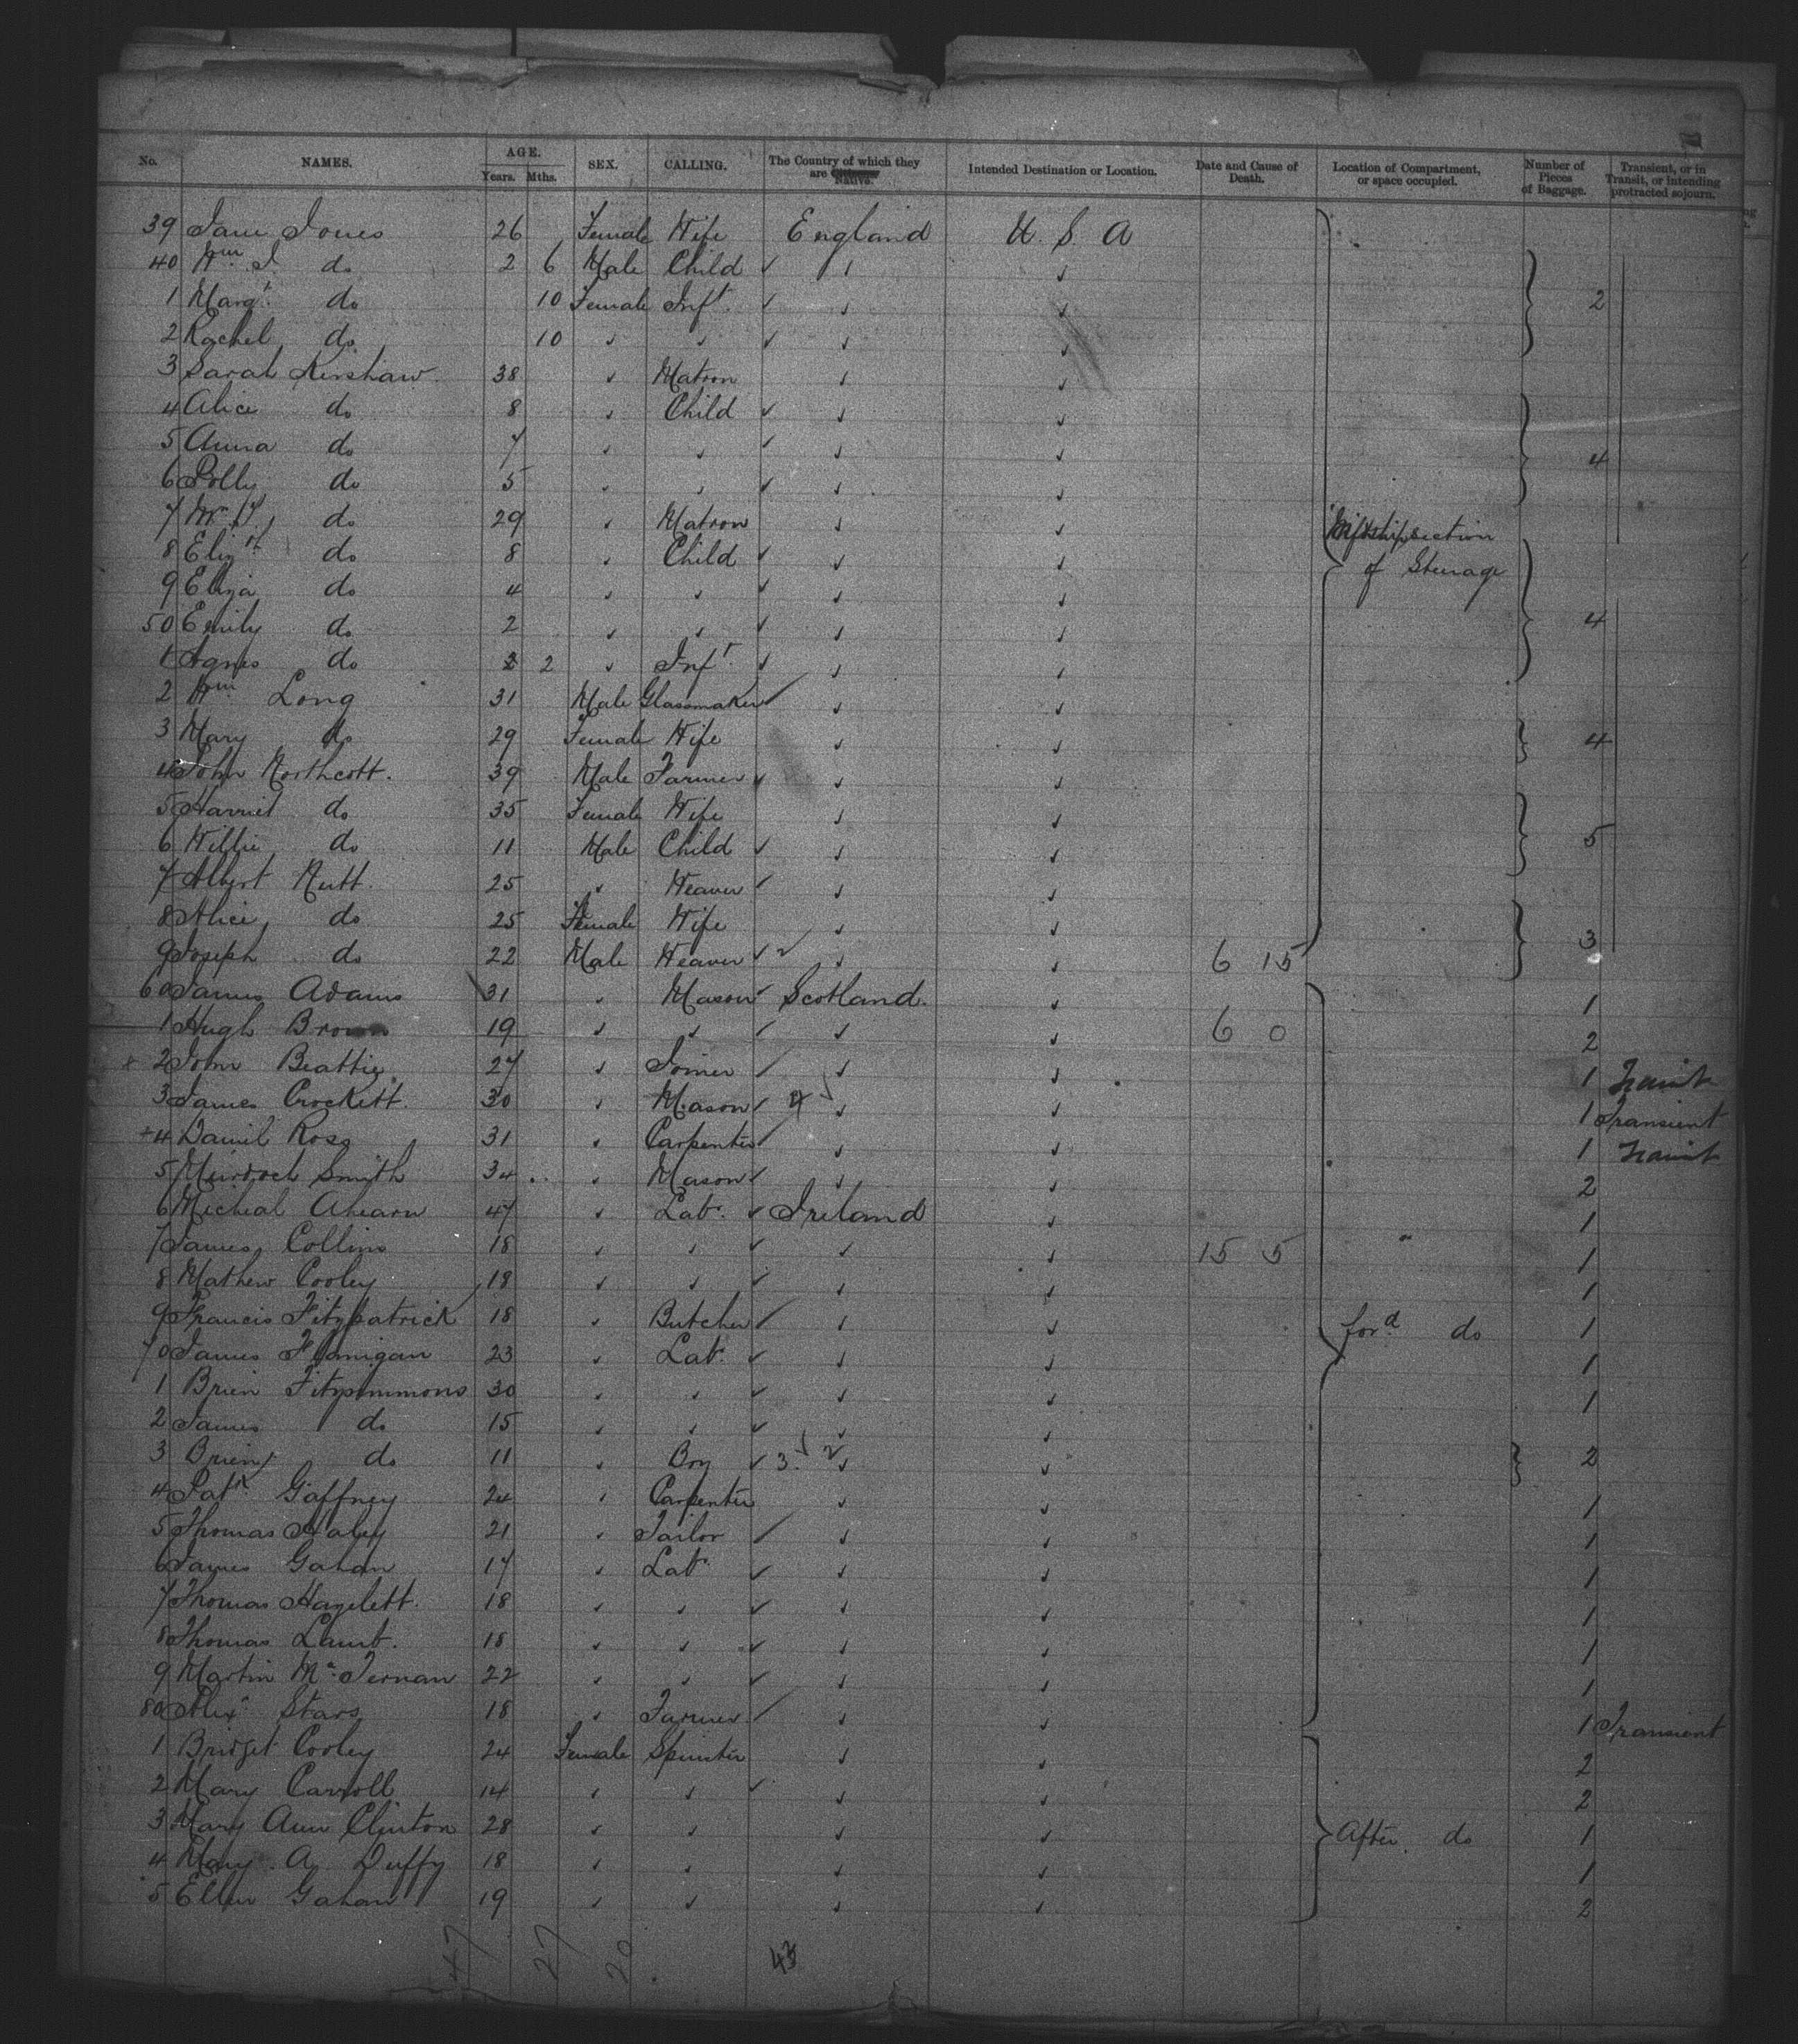 No. NAMES. AGE. Years. Mths. SEX. CALLING. The Country of which they are Native. Intended Destination or Location. Date and Cause of Death. Location of Compartment, or space occupied. Number of Pieces of Baggage. Transient, or in Transit, or intending protracted sojourn.
39 Jane Jones 26 Female Wife England U. S. A
40 Wm J. do 2 6 Male Child
1 Margt. do 10 Female Inft. 2
2 Rachel do 10
3 Sarah Kershaw 38 Matron
4 Alice do 8 Child
5 Anna do 7 4
6 Polly do 5
7 do 29 Matron Midship section
8 Elizth do 8 Child of Steerage
9 Eliza do 4
50 Emily do 2 4
1 Agnes do 2 Inft.
2 Wm Long 31 Male Glassmaker
3 Mary do 29 Female Wife 4
4 John Northcott. 39 Male Farmer
5 Harriet do 35 Female Wife
6 Willie do 11 Male Child 5
7 Albert Nutt. 25 Weaver
8 Alice do 25 Female Wife
9 Joseph do 22 Male Weaver 6 15 3
60 James Adams 31 Mason Scotland. 1
1 Hugh Brown 19 6 0 2
2 John Beattie 27 Joiner 1 Transit
3 James Crockett. 30 Mason 1 Transient
4 Daniel Ross 31 Carpenter 1 Transit
5 Murdoch Smith 34 Mason 2
6 Micheal Ahearn 47 Labr. Ireland 1
7 James Collins 18 15 5 1
8 Mathew Cooley 18 1
9 Francis Fitzpatrick 18 Butcher ford do 1
70 James Flanigan 23 Labr. 1
1 Brien Fitzsimmons 30 1
2 James do 15
3 Brien do 11 Boy 3 2 2
4 Patk. Gaffney 24 Carpenter 1
5 Thomas Haley 21 Tailor 1
6 James Gahan 17 Labr 1
7 Thomas Hazelett. 18 1
8 Thomas Lamb. 18 1
9 Martin Mc Ternan 22 1
80 Alexr Stars 18 Farmer. 1 Transient
1 Bridget Cooley 24 Female Spinster 2
2 Mary Carroll 14 2
3 Mary Ann Clinton 28 After. do 1
4 Mary. A. Duffy 18 1
5 Ellen Gahan 19 2
47 27 20